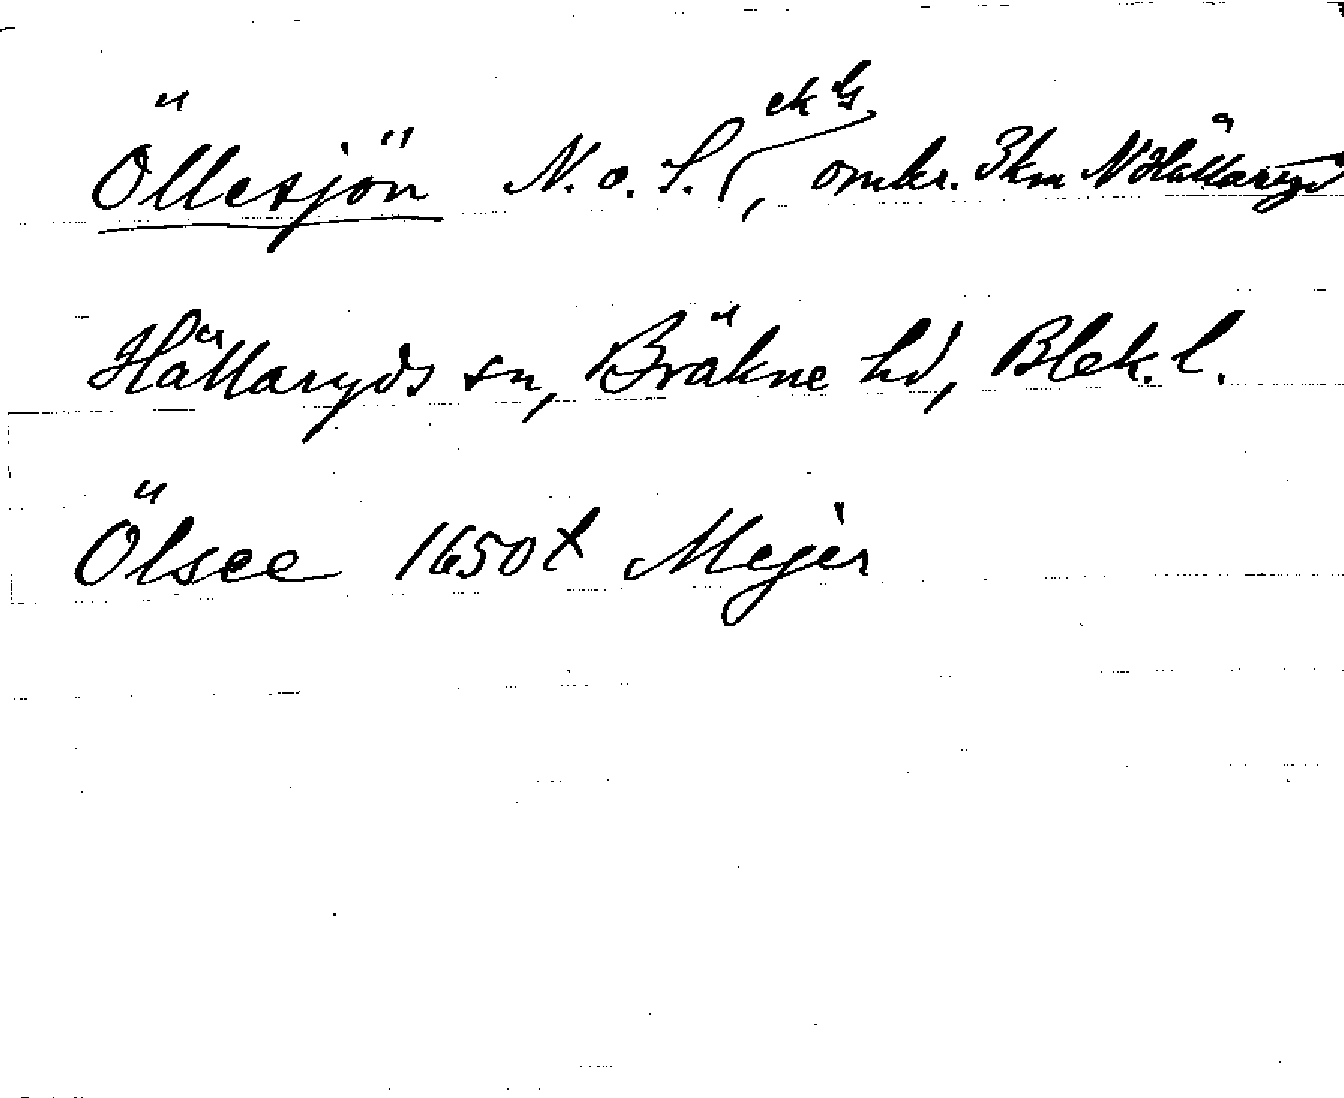 Öllesjön N. o. S., ek G omkr. 3km N Hällaryd
Hällaryds sn, Bräkne hd, Blek. l.
Ölsee 1650t Mejer